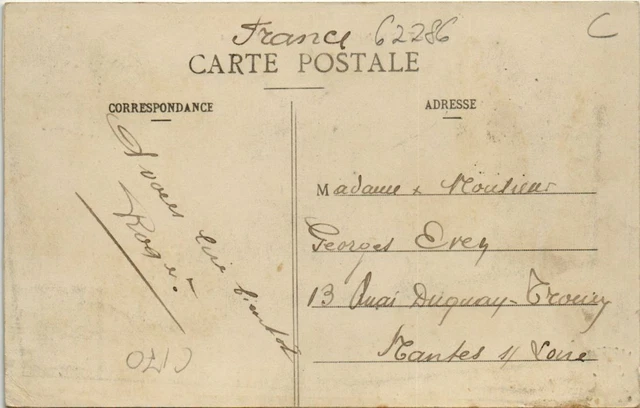 France 62286
C
CARTE POSTALE
CORRESPONDANCE
ADRESSE
A vous lire bientôt
Roger.
Madame & Monsieur
Georges Evey
13 Quai Duguay-Trouin
Nantes s/ Loire
C170